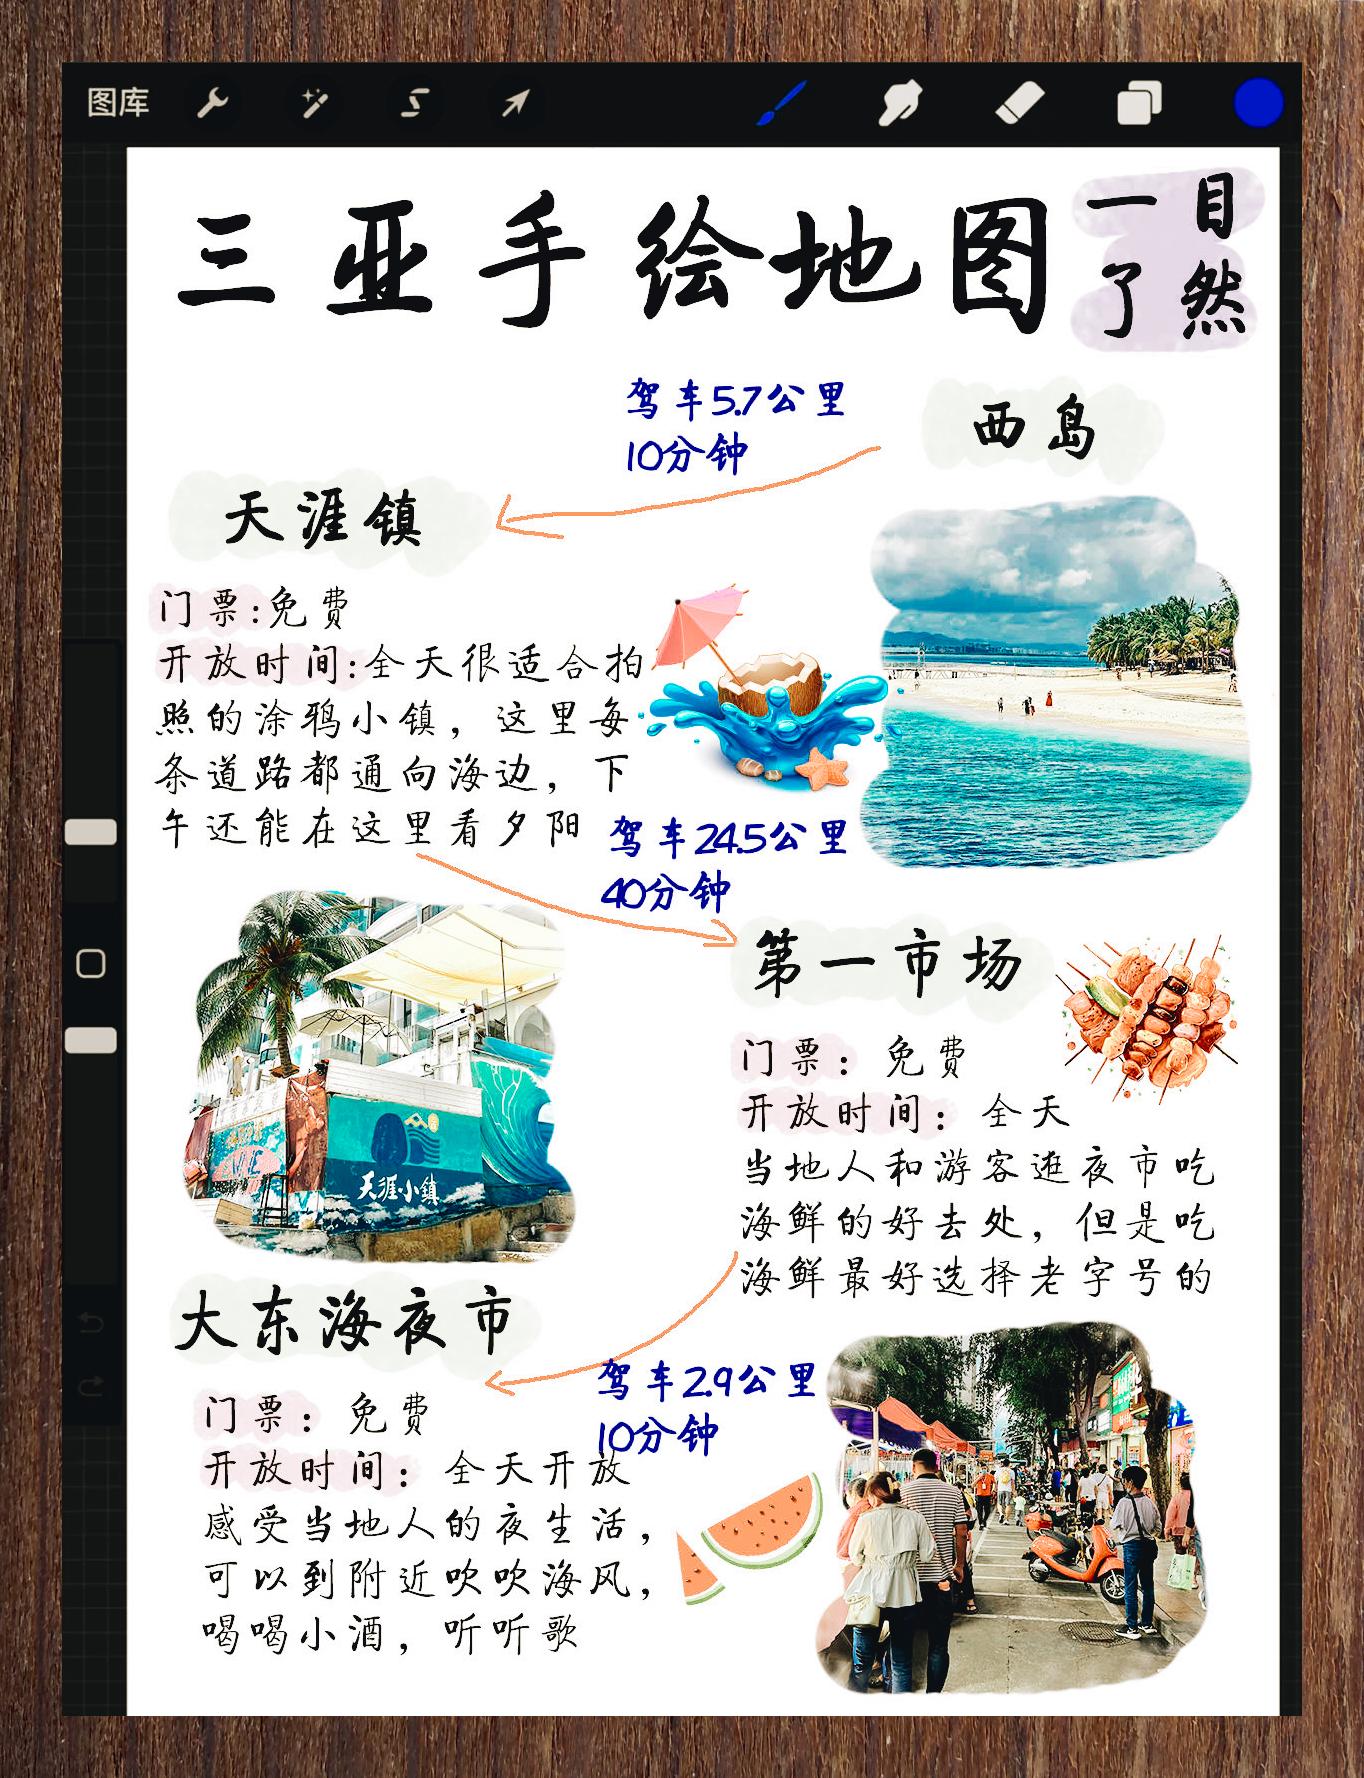 图库
三亚手绘地图
一目
了然
驾车5.7公里
10分钟
西岛
天涯镇
门票:免费
开放时间:全天很适合拍
照的涂鸦小镇，这里每
条道路都通向海边，下
午还能在这里看夕阳
驾车24.5公里
40分钟
天涯小镇
第一市场
门票：免费
开放时间：全天
当地人和游客逛夜市吃
海鲜的好去处，但是吃
海鲜最好选择老字号的
大东海夜市
驾车2.9公里
10分钟
门票：免费
开放时间：全天开放
感受当地人的夜生活，
可以到附近吹吹海风，
喝喝小酒，听听歌